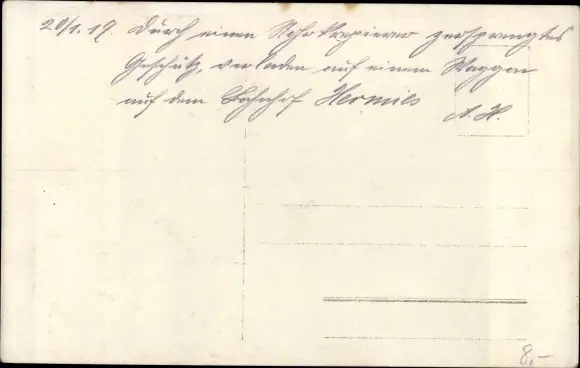 20/1.17. Durch einen Rohrkrepierer zersprengtes
Geschütz, verladen auf einem Waggon
auf dem Bahnhof Hermies
A. H.
8,-